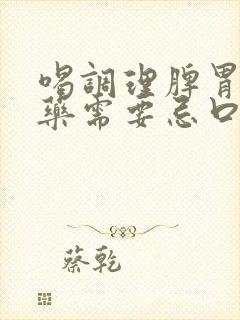 喝調理脾胃
藥需要忌口
蔡乾